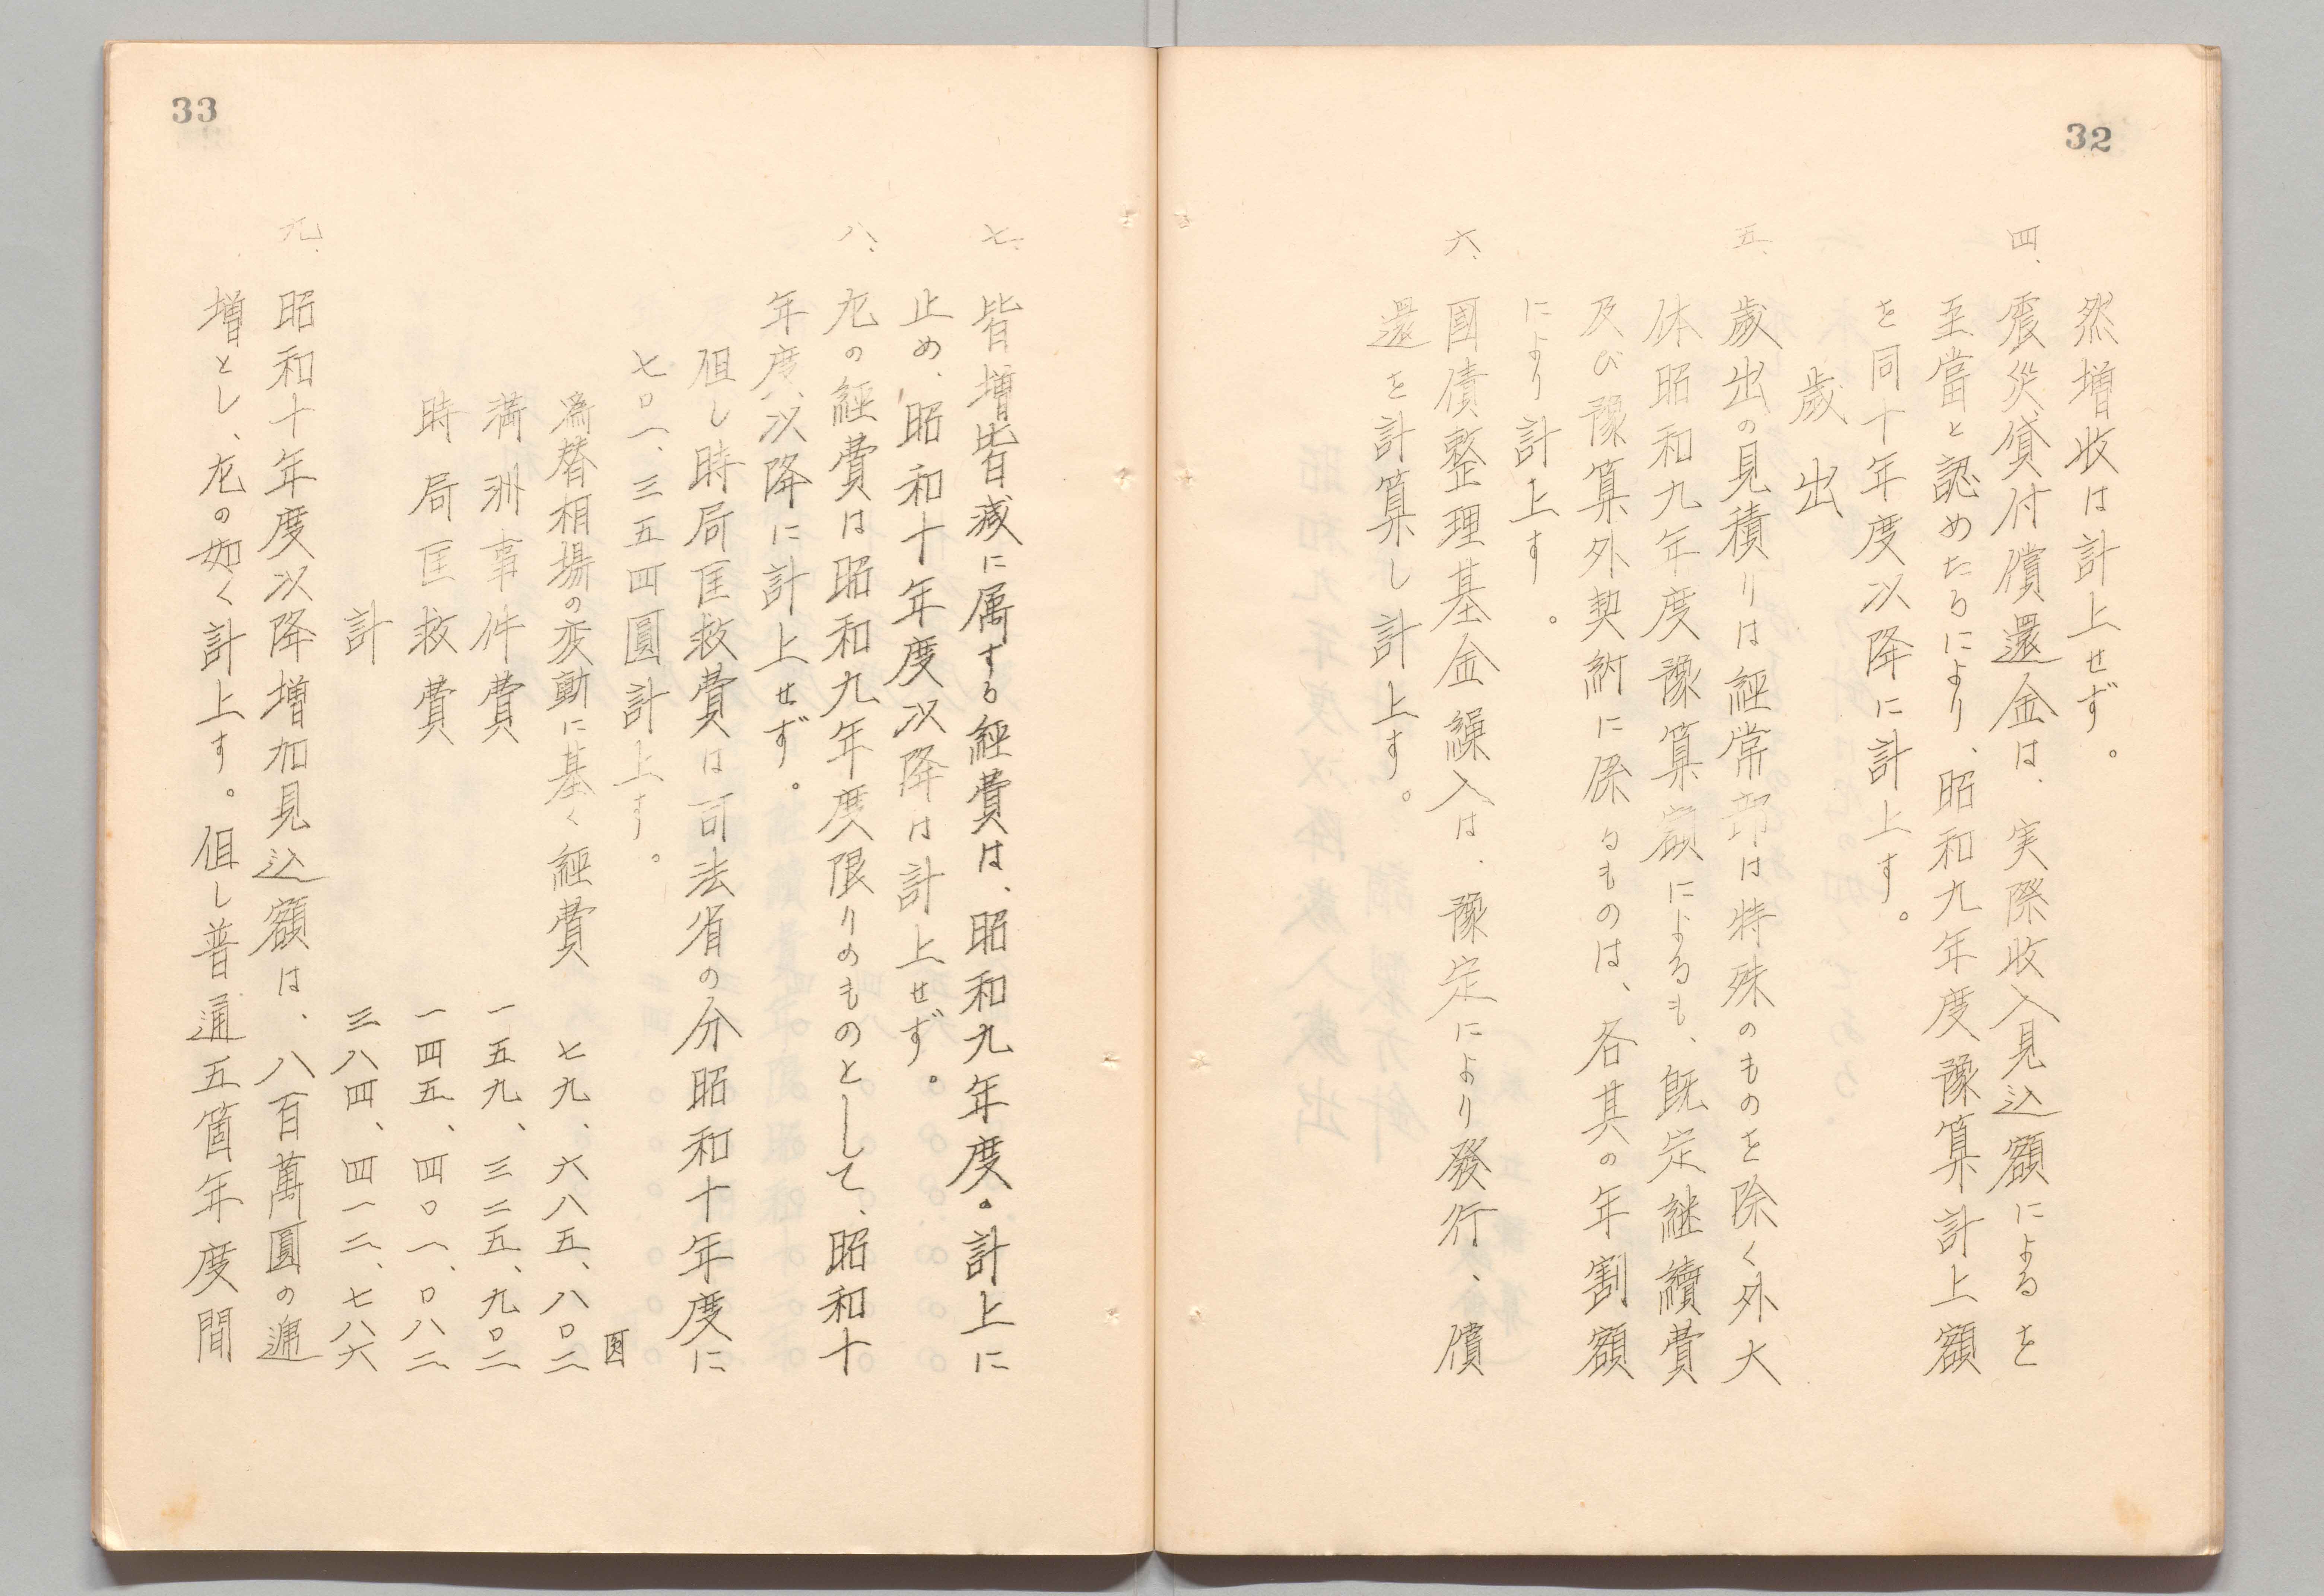 32
然増收は計上せず。
四、震災貸付償還金は、実際收入見込額によるを
至當と認めたるにより、昭和九年度豫算計上額
を同十年度以降に計上す。
歲出
五、歲出の見積りは經常部は特殊のものを除く外大
体昭和九年度豫算額によるも、既定継續費
及び豫算外契約に係るものは、各其の年割額
により計上す。
六、國債整理基金繰入は、豫定により發行、償
還を計算し計上す。
33
七、皆増皆減に属する經費は、昭和九年度。計上に
止め、昭和十年度以降は計上せず。
八、左の經費は昭和九年度限りのものとして、昭和十
年度以降に計上せず。
但し時局匡救費は司法省の分昭和十年度に
七〇一、三五四圓計上す。
圓
為替相場の変動に基く經費 七九、六八五、八〇二
満洲事件費 一五九、三二五、九〇二
時局匡救費 一四五、四〇一、〇八二
計 三八四、四一二、七八六
九、昭和十年度以降増加見込額は、八百萬圓の逓
増とし、左の如く計上す。但し普通五箇年度間